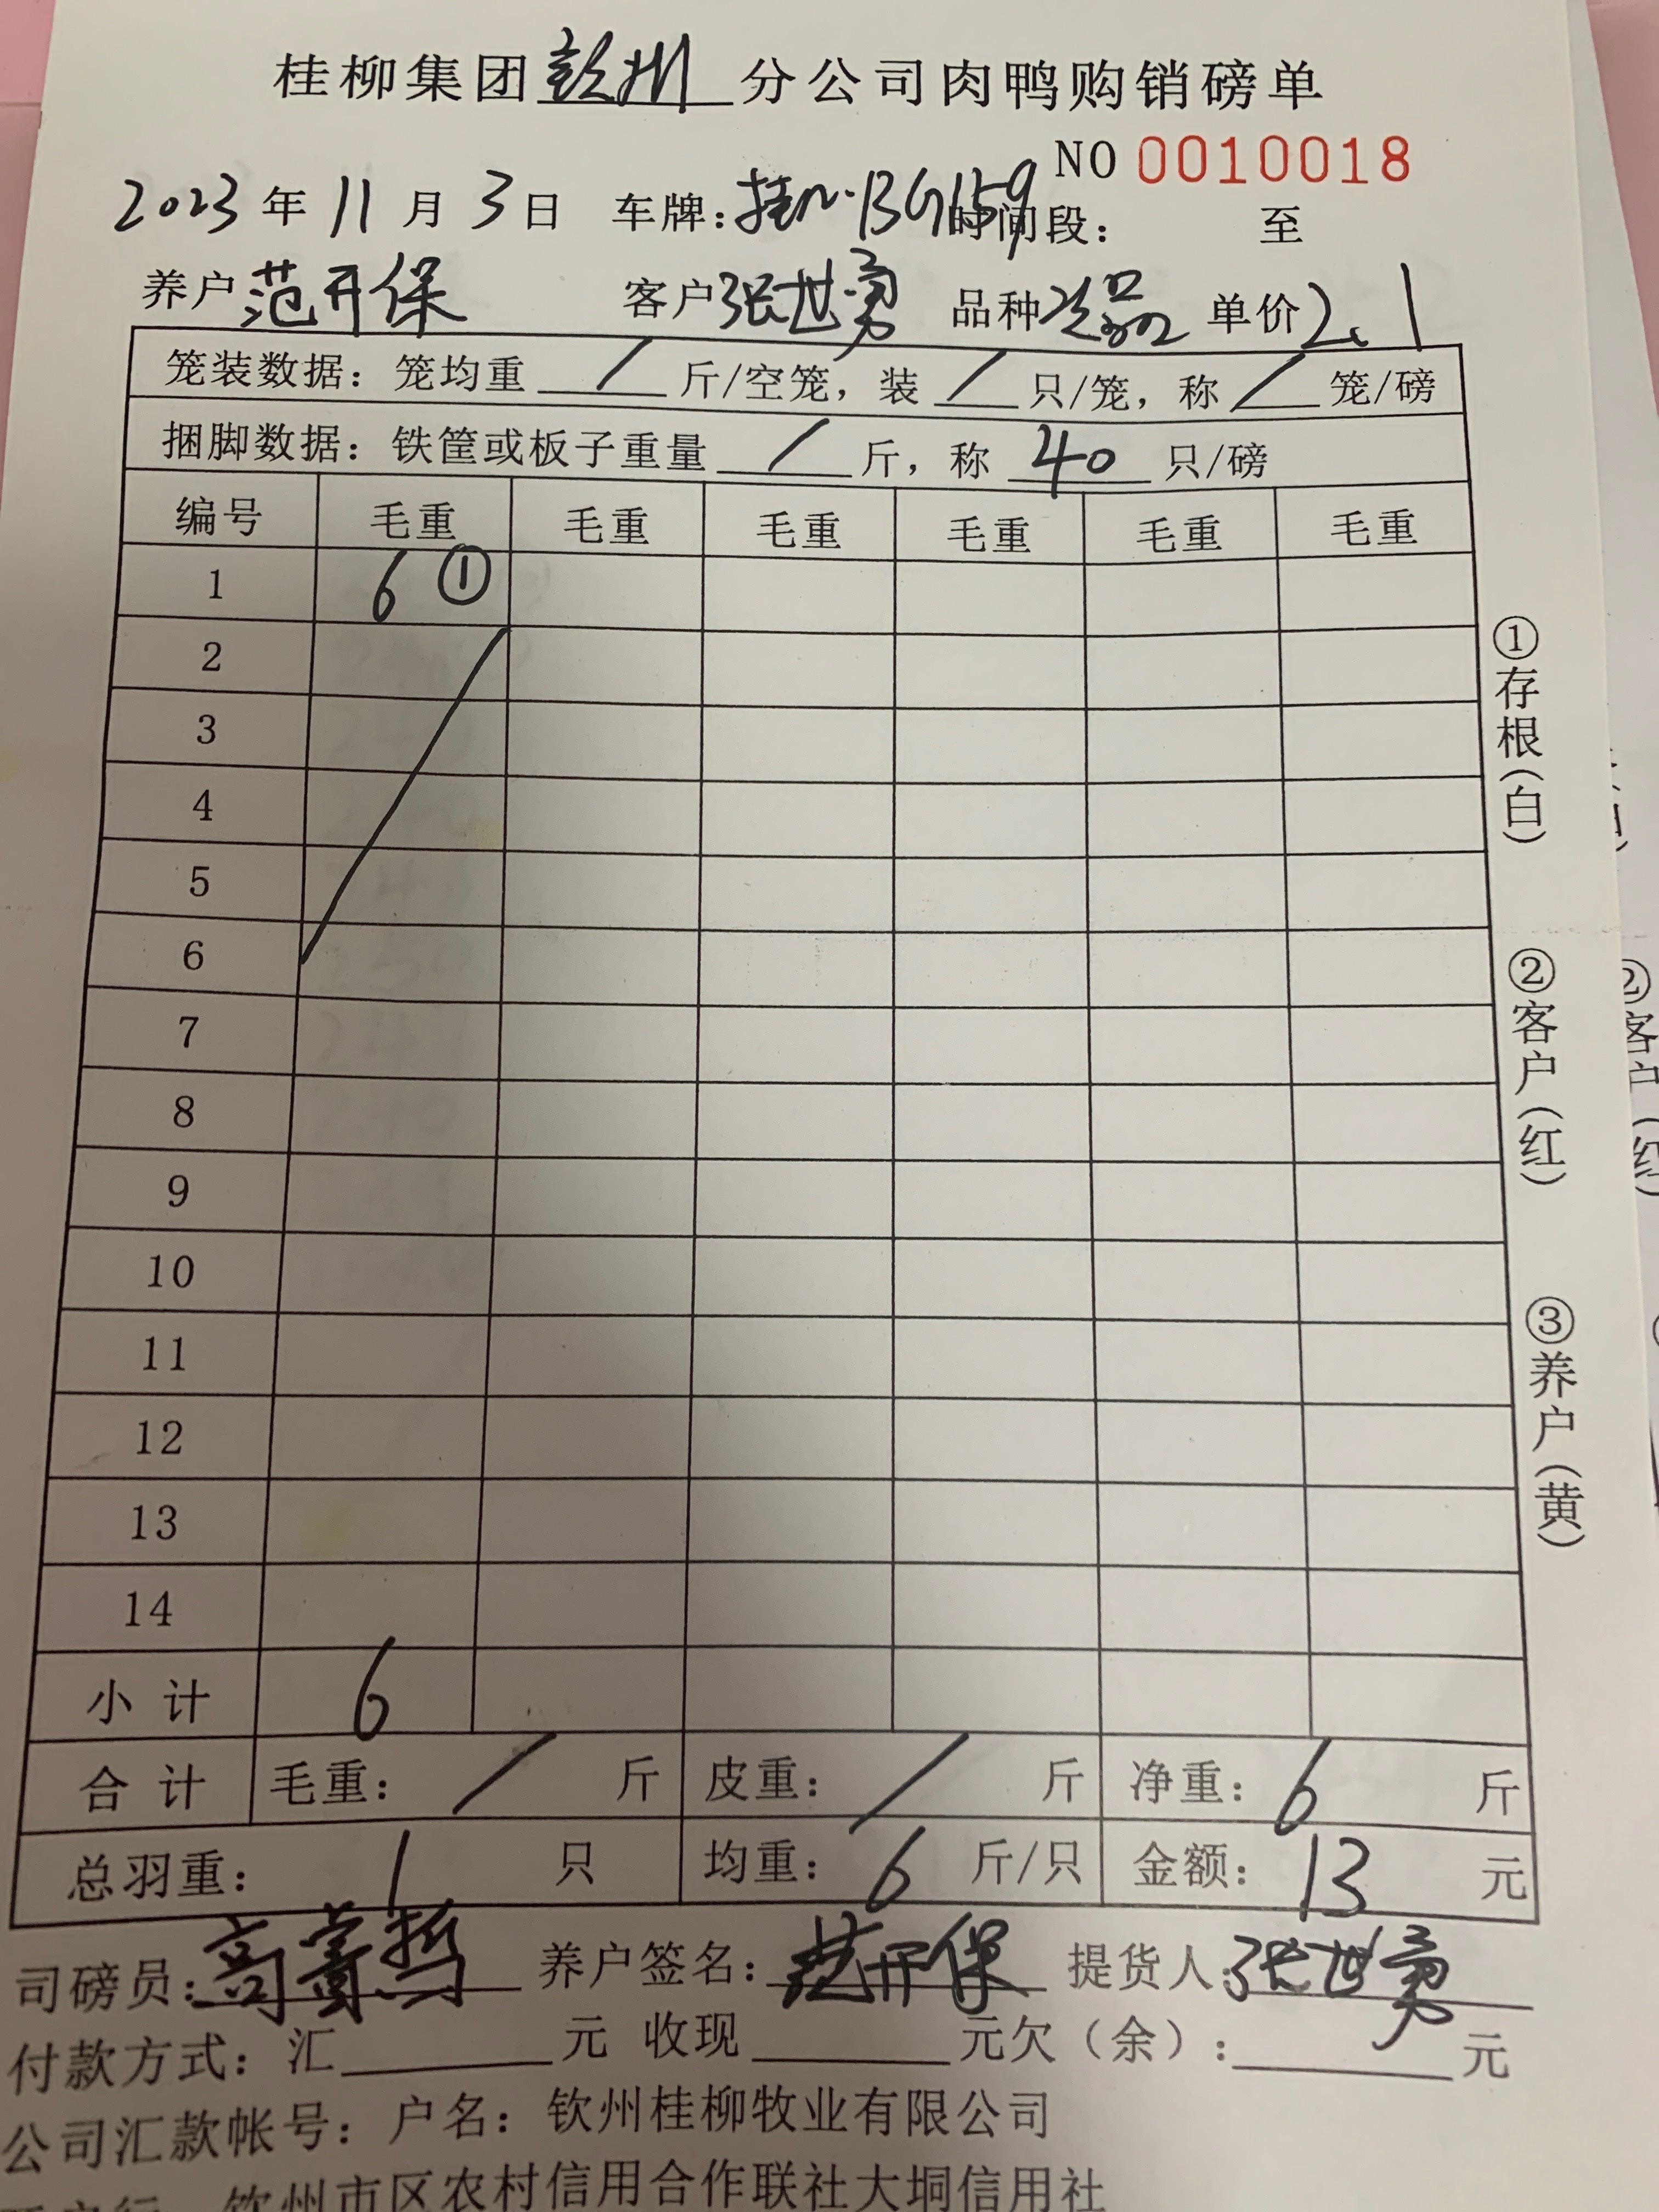 桂柳集团钦州分公司肉鸭购销磅单
NO 0010018
2023年11月3日 车牌：桂N·BG159 时间段： 至
养户 范开保 客户 张世勇 品种 次品 单价 2.1
笼装数据：笼均重 / 斤/空笼，装 / 只/笼，称 / 笼/磅
捆脚数据：铁筐或板子重量 / 斤，称 40 只/磅
编号 毛重 毛重 毛重 毛重 毛重 毛重
1 6 ①
2
3
4
5
6
7
8
9
10
11
12
13
14
小计 6
合计 毛重： / 斤 皮重： / 斤 净重：6 斤
总羽重：1 只 均重：6 斤/只 金额：13 元
司磅员：高 哲 养户签名：范开保 提货人：张世勇
付款方式：汇 元 收现 元欠（余）： 元
公司汇款帐号：户名：钦州桂柳牧业有限公司
钦州市区农村信用合作联社大垌信用社
①存根（白）
②客户（红）
③养户（黄）